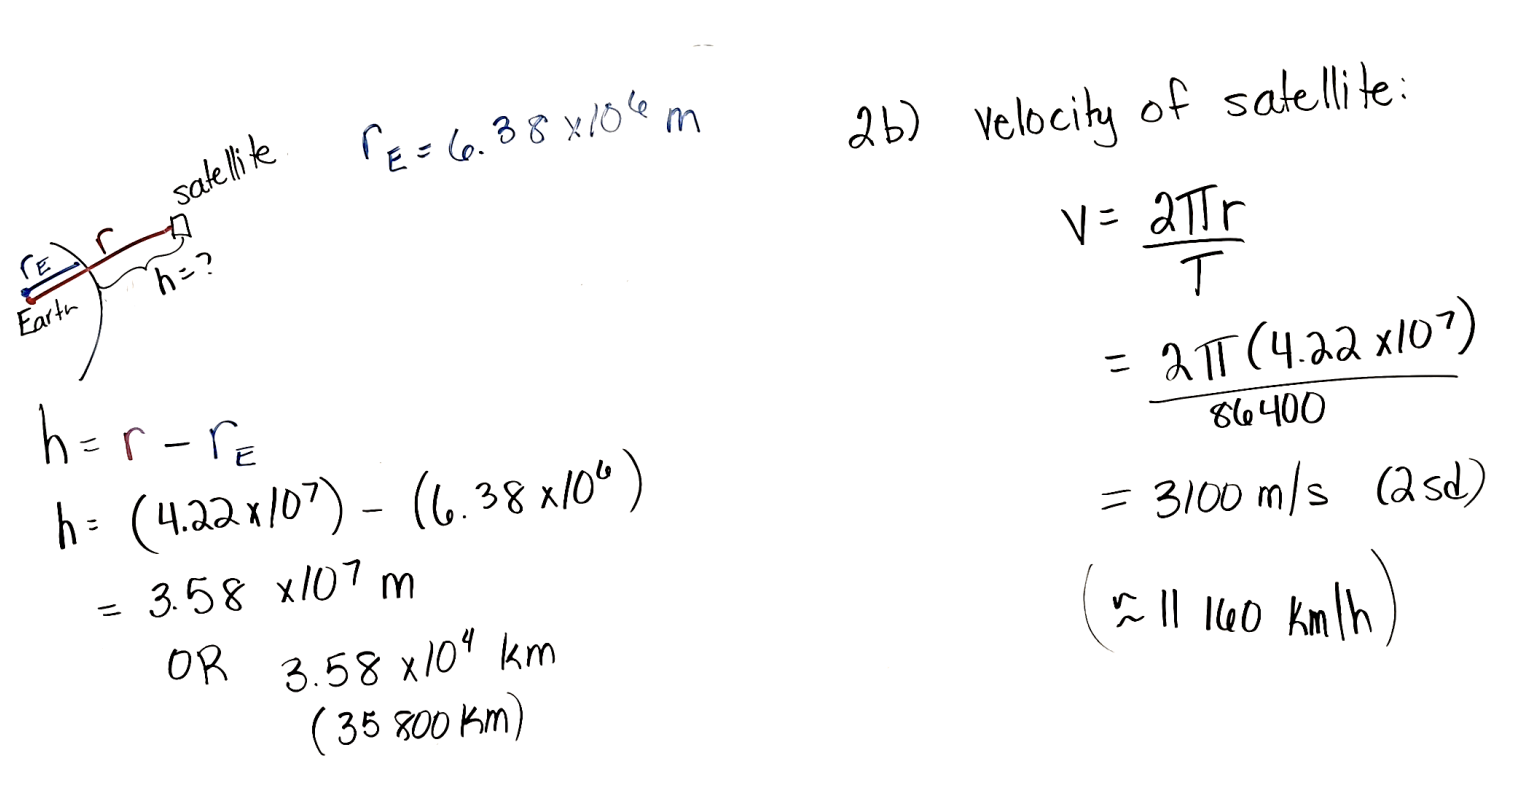 r_E = 6.38 x10^6 m
satellite
r
r_E
h = ?
Earth
h = r - r_E
h = (4.22 x10^7) - (6.38 x10^6)
= 3.58 x10^7 m
OR 3.58 x10^4 km
(35 800 km)
2b) velocity of satellite:
V = 2πr / T
= 2π(4.22 x10^7) / 86400
= 3100 m/s (2sd)
(≈ 11 160 km/h)